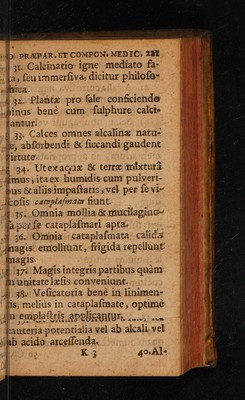 D PRÆPAR. ET COMPON. MEDIC. 221
31. Calcinatio igne mediato fa-
ta, seu immersiva, dicitur philoso-
hica.
32. Plantæ pro sale conficiendo
inus bene cum sulphure calci-
antur.
33. Calces omnes alcalinæ natu-
æ, absorbendi & siccandi gaudent
irtute.
34. Ut ex aquæ & terræ mixtura
amus, ita ex humidis cum pulveri-
us & aliis impastatis, vel per se vi-
cosis cataplasmata fiunt.
35. Omnia mollia & mucilagino-
a per se cataplasmati apta.
36. Omnia cataplasmata calida
magis emolliunt, frigida repellunt
magis.
37. Magis integris partibus quàm
n unitate læsis conveniunt.
38. Vesicatoria bene in linimen-
is, melius in cataplasmate, optime
n emplastris applicantur.
cauteria potentialia vel ab alcali vel
ab acido arcessenda.
K 3 40. Al-